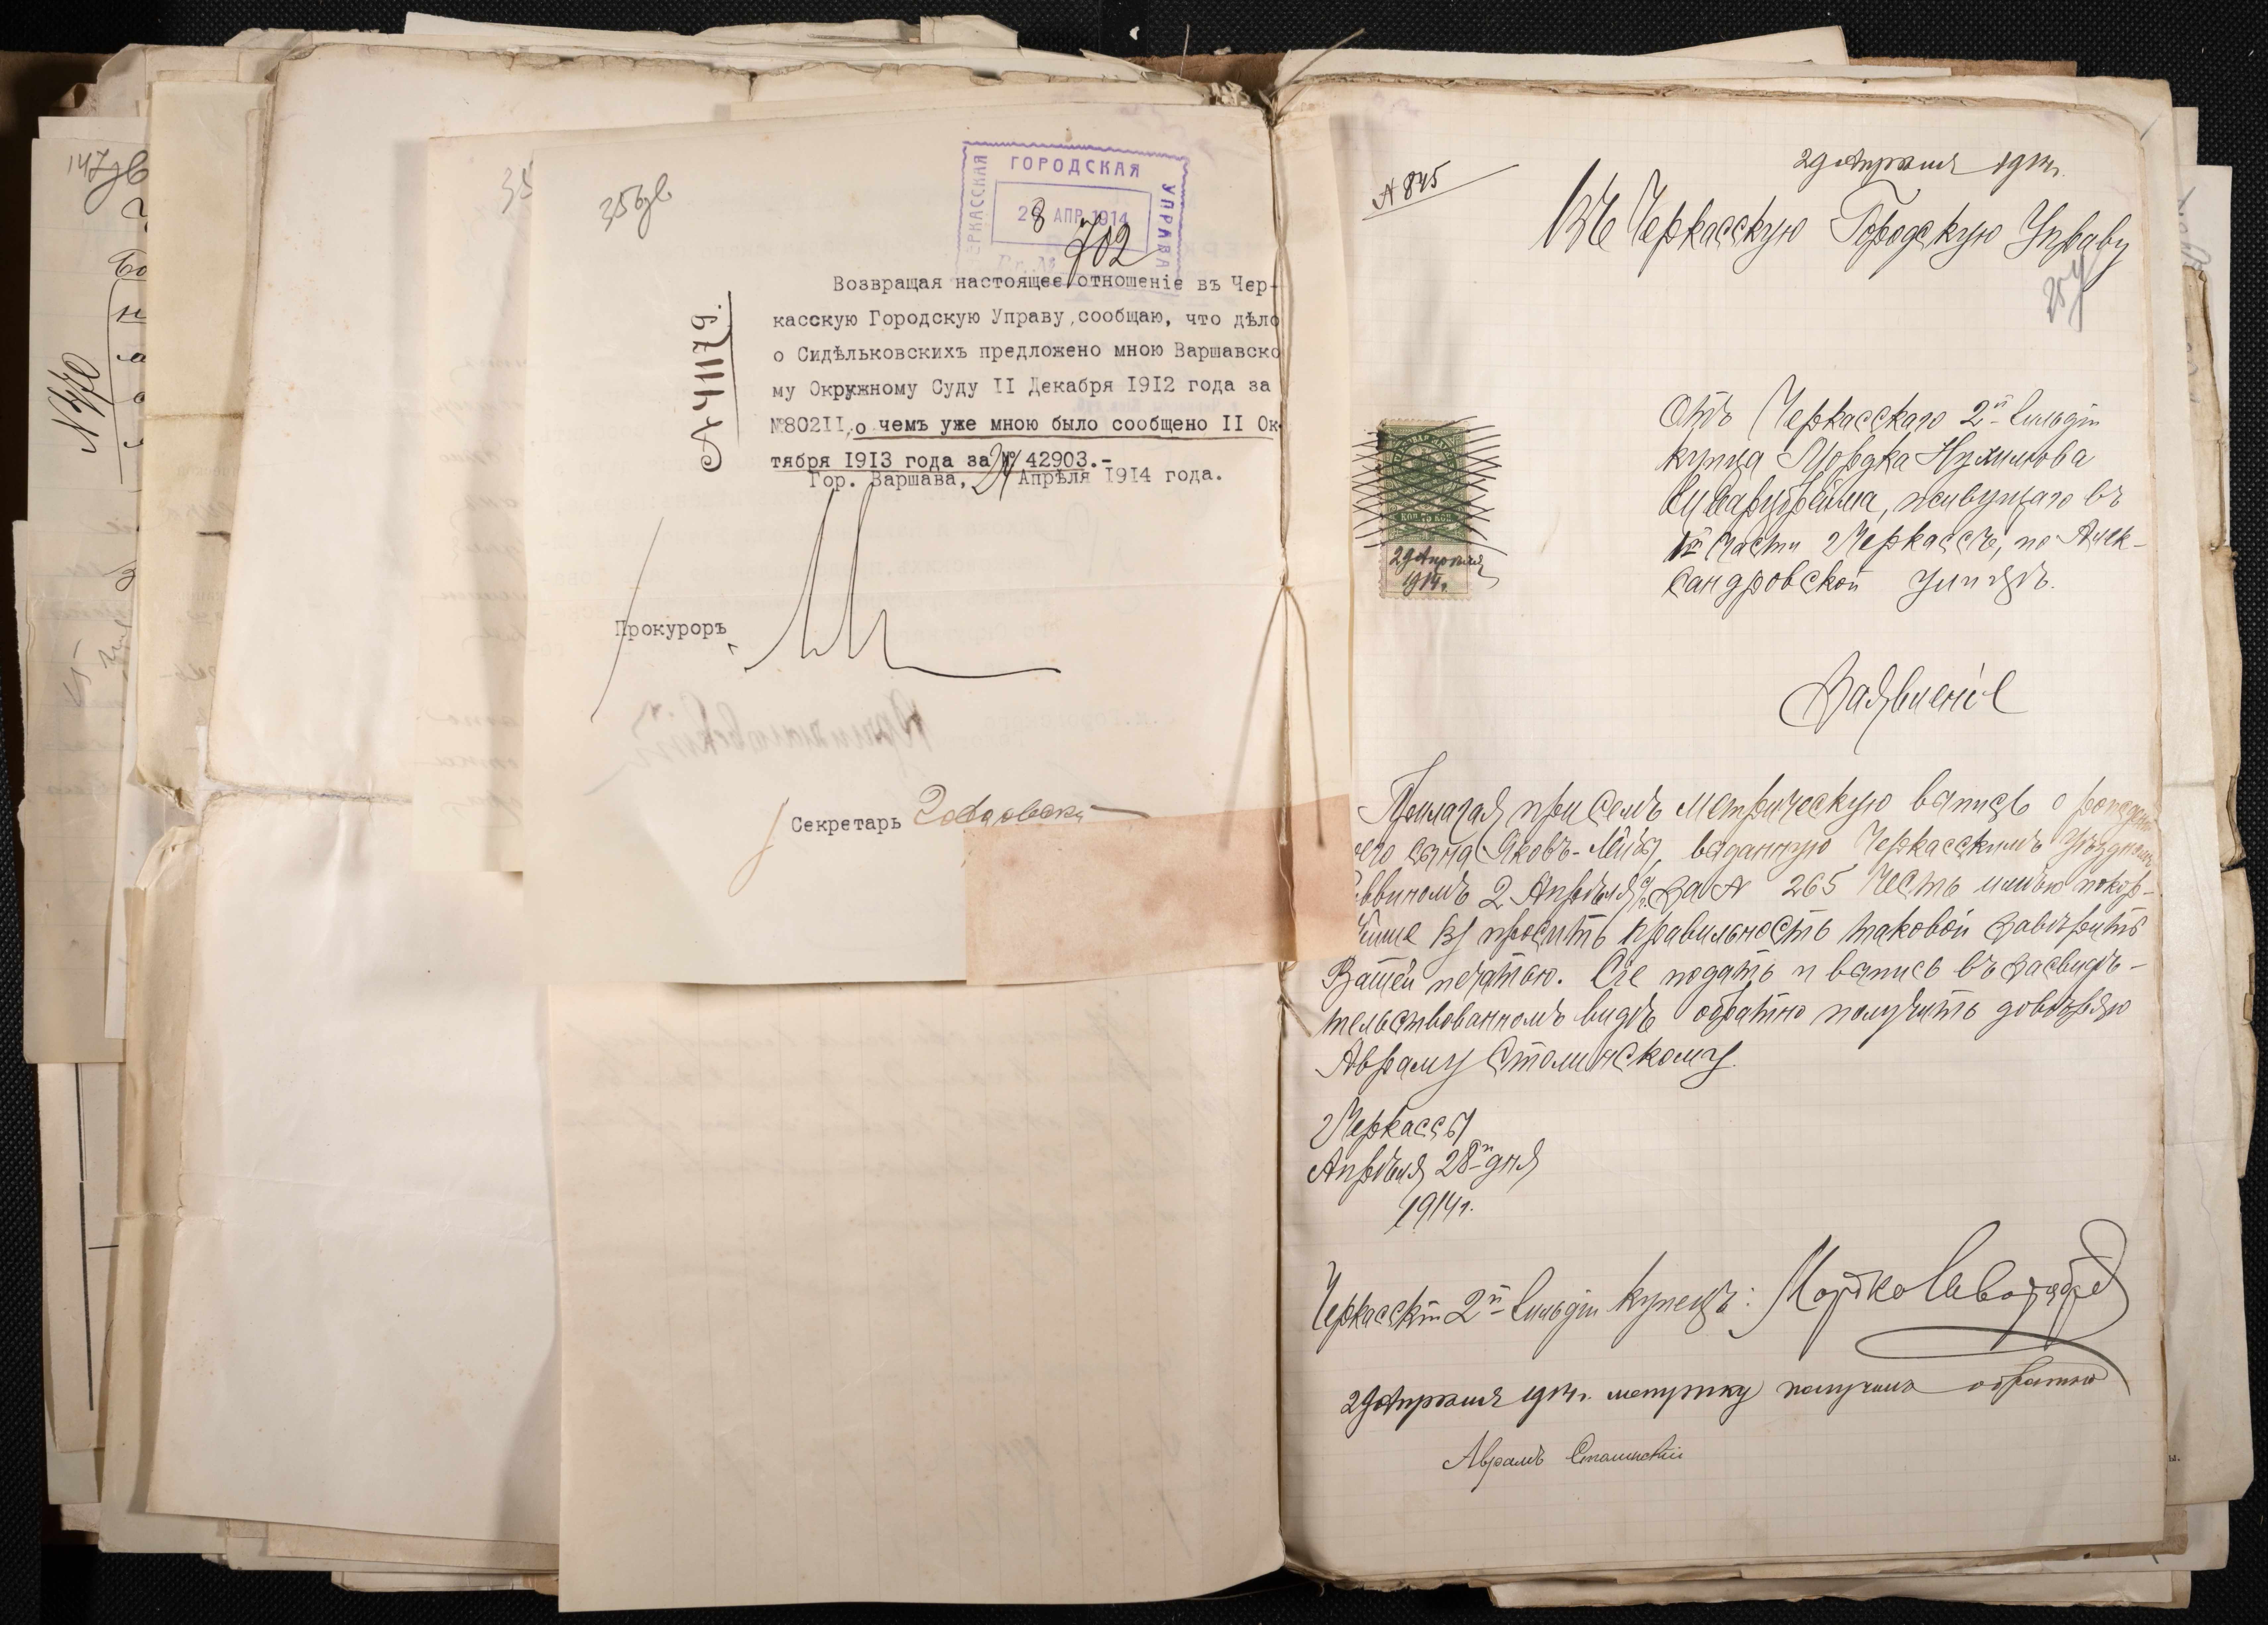 147 об
N 470
35
356 об
ЧЕРКАССКАЯ ГОРОДСКАЯ УПРАВА
28 АПР 1914
Вх. №
702
№ 41179.
Возвращая настоящее отношеніе въ Чер-
касскую Городскую Управу, сообщаю, что дѣло
о Сидѣльковскихъ предложено мною Варшавско
му Окружному Суду II Декабря 1912 года за
№80211, о чемъ уже мною было сообщено II Ок-
тября 1913 года за № 42903.-
Гор. Варшава, 24 Апрѣля 1914 года.
Прокуроръ
Секретарь
№ 845
29 Апрѣля 1914г.
Въ Черкасскую Городскую Управу
357
Отъ Черкасскаго 2й Гильдіи
купца Мордка Нухимова
живущаго въ
1й части г. Черкассъ, по Алек-
сандровской улицѣ.
КОП. 75 КОП.
29 Апрѣля
1914г.
Заявленіе
Прилагая при семъ метрическую выпись о рожденіи
моего сына Яковъ-Лейба, выданную Черкасскимъ Уѣзднымъ
Раввиномъ 2 Апрѣля с/г. за № 265 честь имѣю покор-
нѣйше просить правильность таковой завѣрить
Вашей печатью. Сіе подать и выпись въ засвидѣ-
тельствованномъ видѣ обратно получить довѣряю
Авраму Столинскому.
Черкассы
Апрѣля 28го дня
1914г.
Черкасскій 2й Гильдіи Купецъ: Мордко
29 Апрѣля 1914г. метрику получилъ обратно
Аврамъ Столинскій